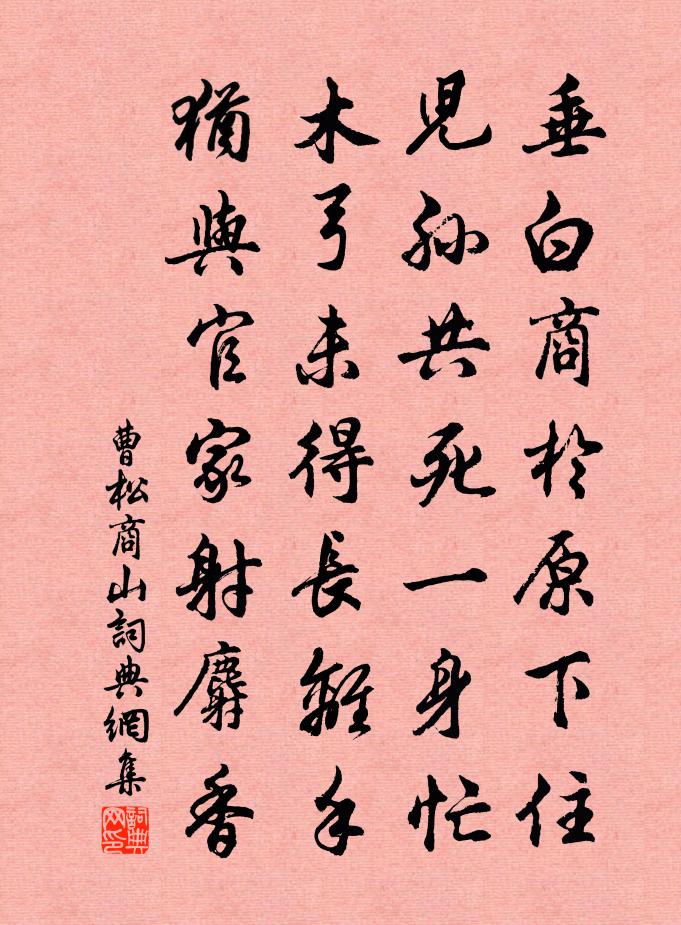 垂白商於原下住
兒孫共死一身忙
木弓未得長離手
猶與官家射麝香
曹松商山詞典網集
詞典网印